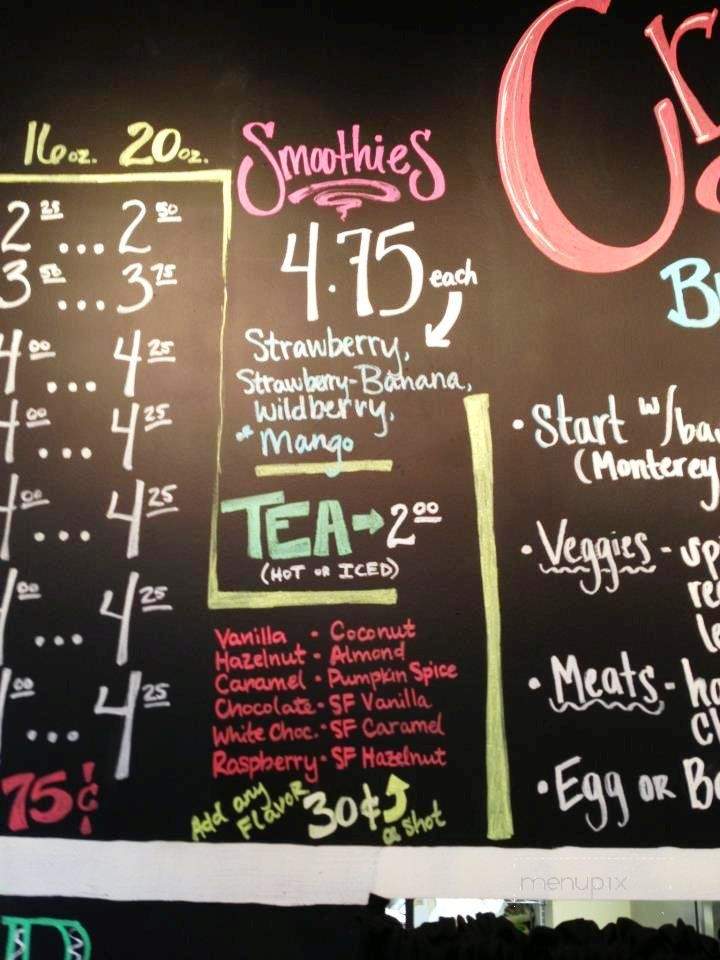 16oz. 20oz.
2 25 ... 2 50
3 50 ... 3 75
4 00 ... 4 25
4 00 ... 4 25
4 00 ... 4 25
00 ... 4 25
00 ... 4 25
75¢
Smoothies
4.75 each
Strawberry,
Strawberry-Banana,
Wildberry,
or Mango
TEA → 2 00
(HOT OR ICED)
Vanilla • Coconut
Hazelnut • Almond
Caramel • Pumpkin Spice
Chocolate • SF Vanilla
White Choc. • SF Caramel
Raspberry • SF Hazelnut
Add any Flavor 30¢ a shot
Cr
B
• Start w/ba
(Monterey
• Veggies - sp
re
le
• Meats - ha
ch
• Egg OR B
menupix